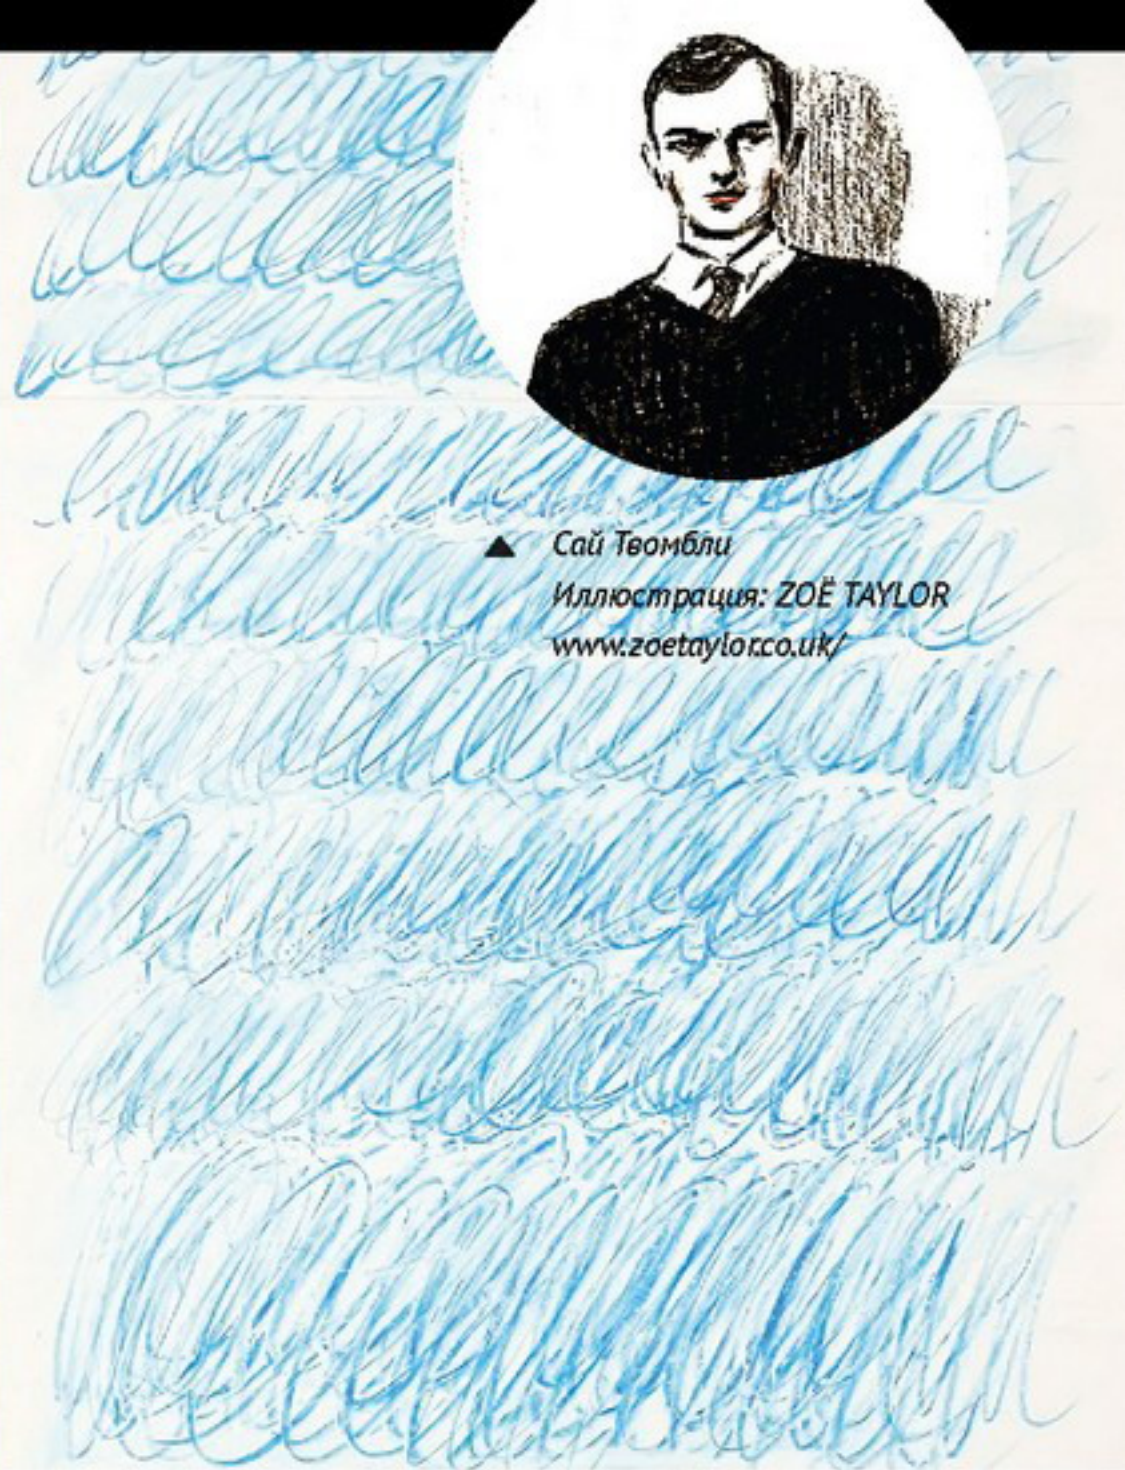 Сай Твомбли
Иллюстрация: ZOË TAYLOR
www.zoetaylor.co.uk/